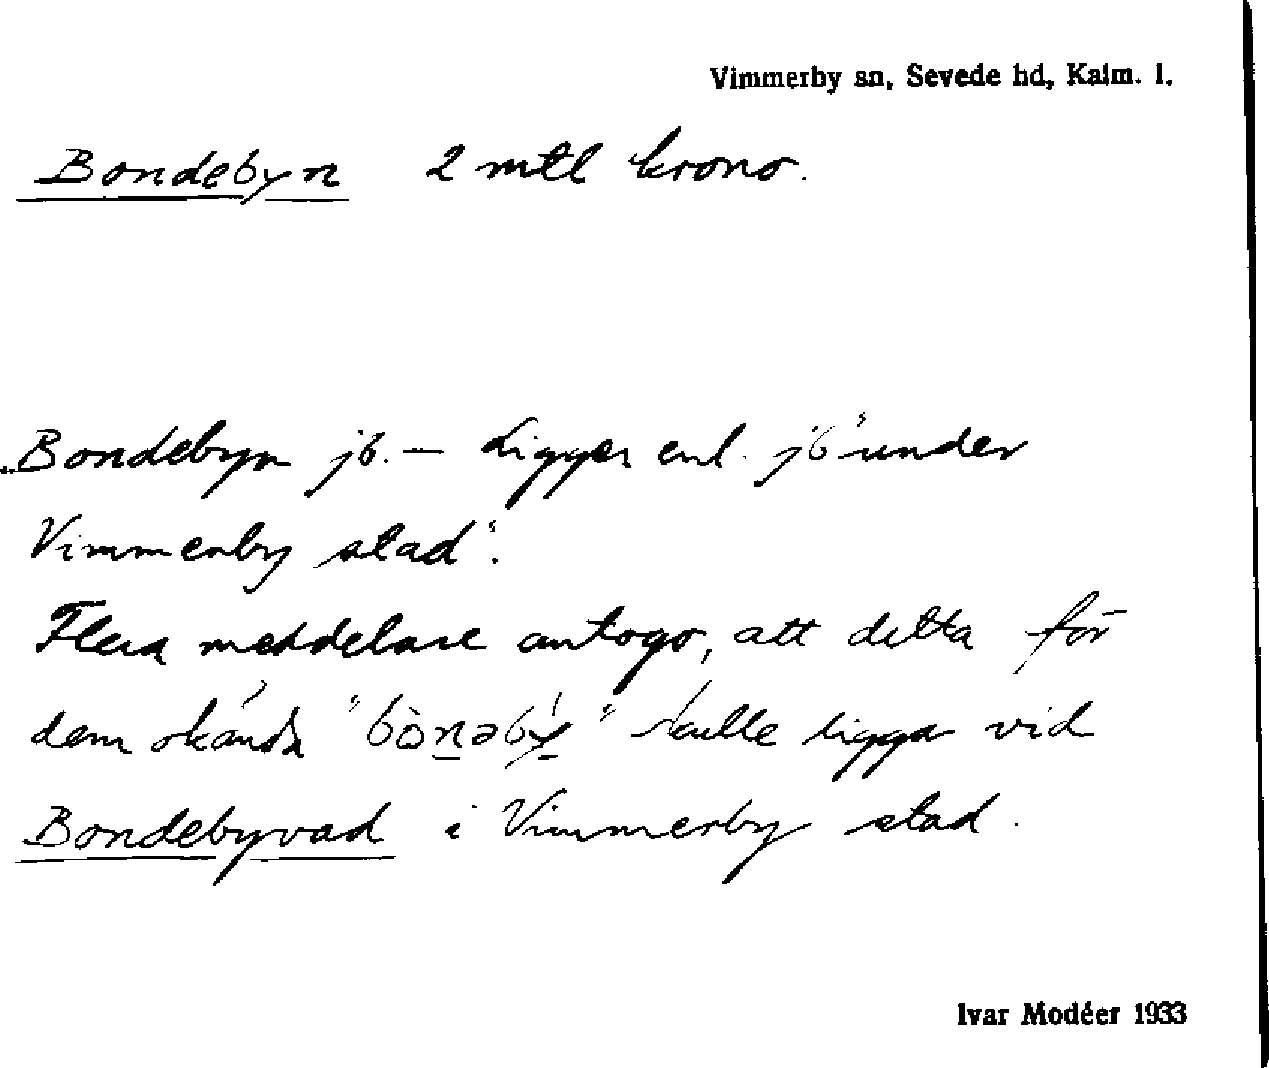 Vimmerby sn, Sevede hd, Kalm. l.
Bondebyn 2 mtl krono.
Bondebyn jb. — Ligger enl. jb "under
Vimmerby stad".
Flera meddelare antogo, att detta för
dem okända "bònəbý" skulle ligga vid
Bondebyvad i Vimmerby stad.
Ivar Modéer 1933